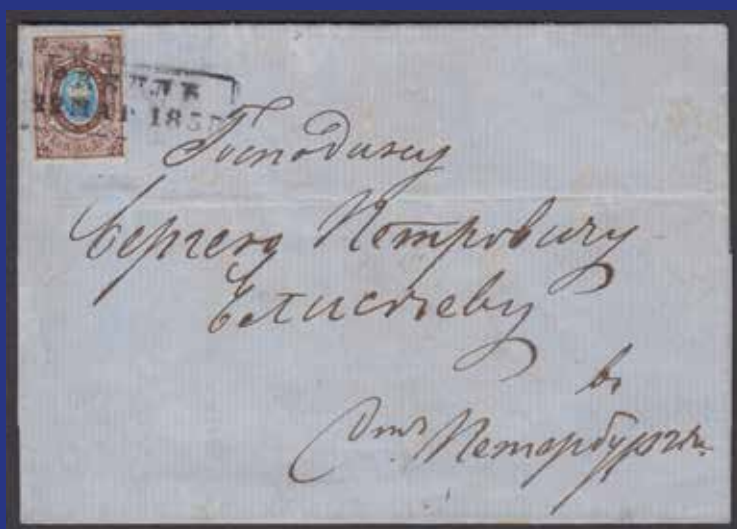 22 МАР 185
Господину
Сергею Петровичу
Елисѣеву
въ
Петербургъ